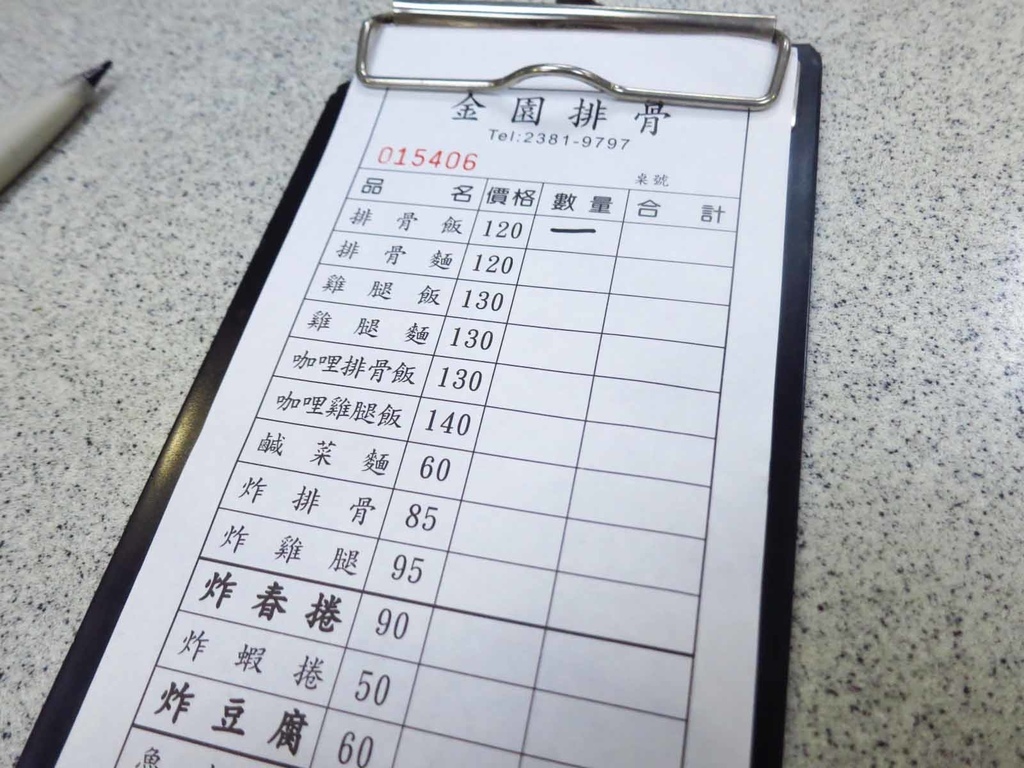 金園排骨
Tel:2381-9797
015406
桌號
品名 價格 數量 合計
排骨飯 120 一
排骨麵 120
雞腿飯 130
雞腿麵 130
咖哩排骨飯 130
咖哩雞腿飯 140
鹹菜麵 60
炸排骨 85
炸雞腿 95
炸春捲 90
炸蝦捲 50
炸豆腐 60
魚